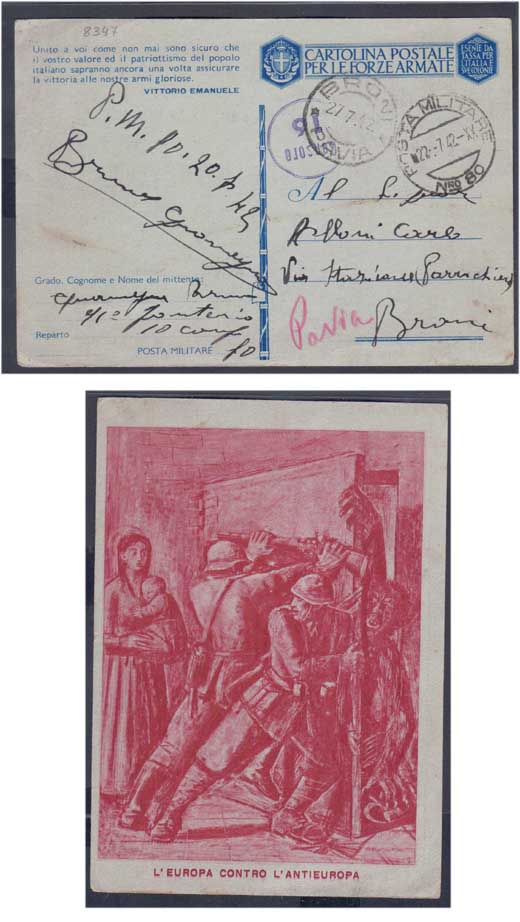 8347
Unito a voi come non mai sono sicuro che
il vostro valore ed il patriottismo del popolo
italiano sapranno ancora una volta assicurare
la vittoria alle nostre armi gloriose.
VITTORIO EMANUELE
CARTOLINA POSTALE
PER LE FORZE ARMATE
ESENTE DA
TASSA PER
L'ITALIA E
LE COLONIE
BRONI
27.7.42
PAVIA
POSTA MILITARE
Nro 80
P. M. 80. 20. 7. 42
Bruno
Al
Carlo
Via
Pavia
Broni
Grado, Cognome e Nome del mittente:
Reparto
10 comp
POSTA MILITARE 80
L'EUROPA CONTRO L'ANTIEUROPA